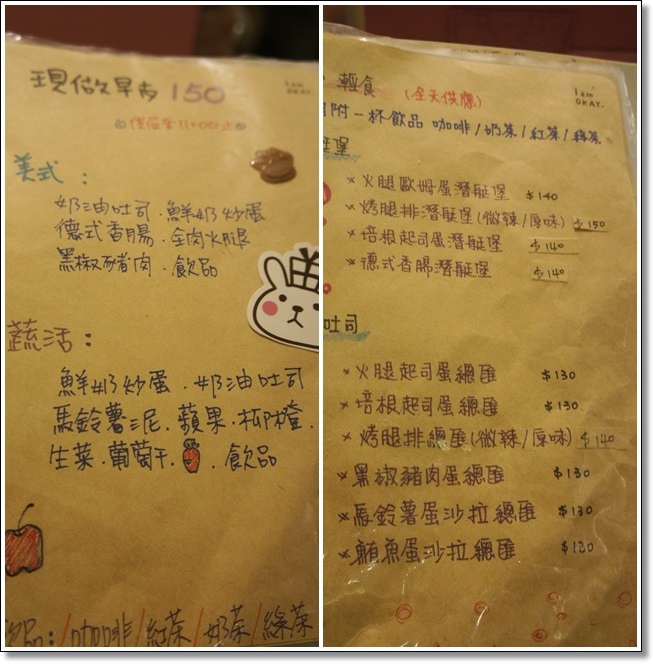 現做早午 150
I am
OKAY.
◎僅供至 11:00 止◎
美式：
奶油吐司．鮮奶炒蛋
德式香腸．全肉火腿
黑椒豬肉．飲品
蔬活：
鮮奶炒蛋．奶油吐司
馬鈴薯泥．蘋果．柳橙．
生菜．葡萄干．．飲品
品：/咖啡/紅茶/奶茶/綠茶
輕食 (全天供應)
I am
OKAY.
附一杯飲品 咖啡/奶茶/紅茶/綠茶
艇堡
×火腿歐姆蛋潛艇堡 $140
×烤腿排潛艇堡(微辣/原味) $150
×培根起司蛋潛艇堡 $140
×德式香腸潛艇堡 $140
吐司
×火腿起司蛋總匯 $130
×培根起司蛋總匯 $130
×烤腿排總匯(微辣/原味) $140
×黑椒豬肉蛋總匯 $130
×馬鈴薯蛋沙拉總匯 $130
×鮪魚蛋沙拉總匯 $130